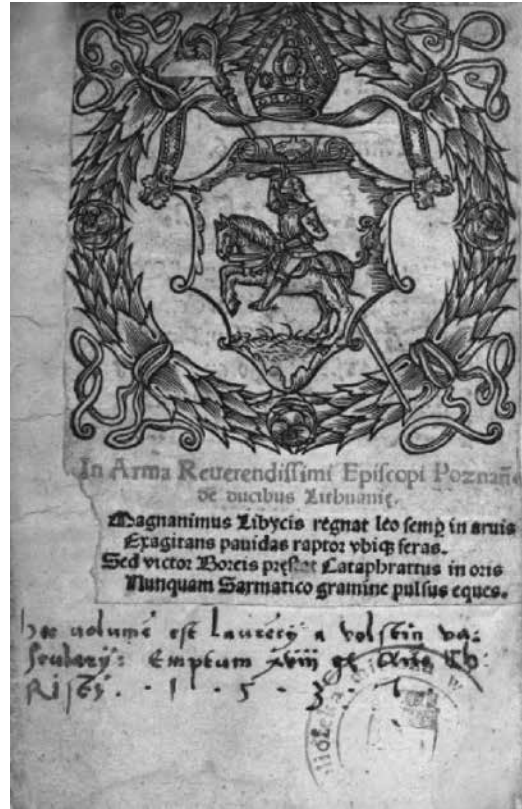 In Arma Reuerendissimi Episcopi Poznan̄e
de ducibus Lithuanie.
Magnanimus Libycis regnat leo semꝑ in aruis
Exagitans pauidas raptor vbiqꝫ feras.
Sed victor Boreis prestat Cataphrattus in oris
Nunquam Sarmatico gramine pulsus eques.
hoc volumē est Laurēcij a volstin
Emptum xviii
1 5 3